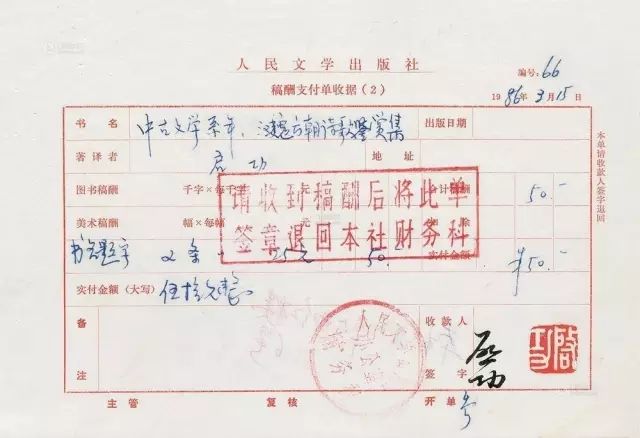 人民文学出版社
稿酬支付单收据(2)
编号: 66
1986年3月15日
书名 中古文学系年、汉魏六朝诗歌鉴赏集 出版日期
著译者 启功 地址
图书稿酬 千字×每千 元 计稿酬 50.-
美术稿酬 幅×每幅 扣除
书名题字 2条 25元 50.- 实付金额 ¥50.-
实付金额(大写) 伍拾元整
请收到稿酬后将此单
签章退回本社财务科
备注
收款人
签字
启功
启功
主管 复核 开单
本单请收款人签字退回